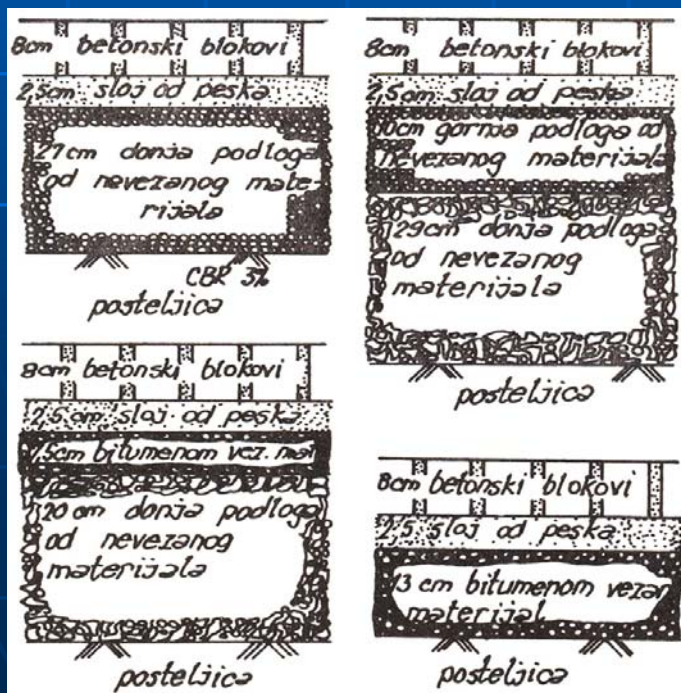 8cm betonski blokovi
2,5cm sloj od peska
27cm donja podloga
od nevezanog mate-
rijala
CBR 3%
posteljica
8cm betonski blokovi
2,5cm sloj od peska
10cm gornja podloga od
nevezanog materijala
29cm donja podloga
od nevezanog
materijala
posteljica
8cm betonski blokovi
2,5cm sloj od peska
7,5cm bitumenom vez. mat
20cm donja podloga
od nevezanog
materijala
posteljica
8cm betonski blokovi
2,5 sloj od peska
13cm bitumenom vezan
materijal
posteljica